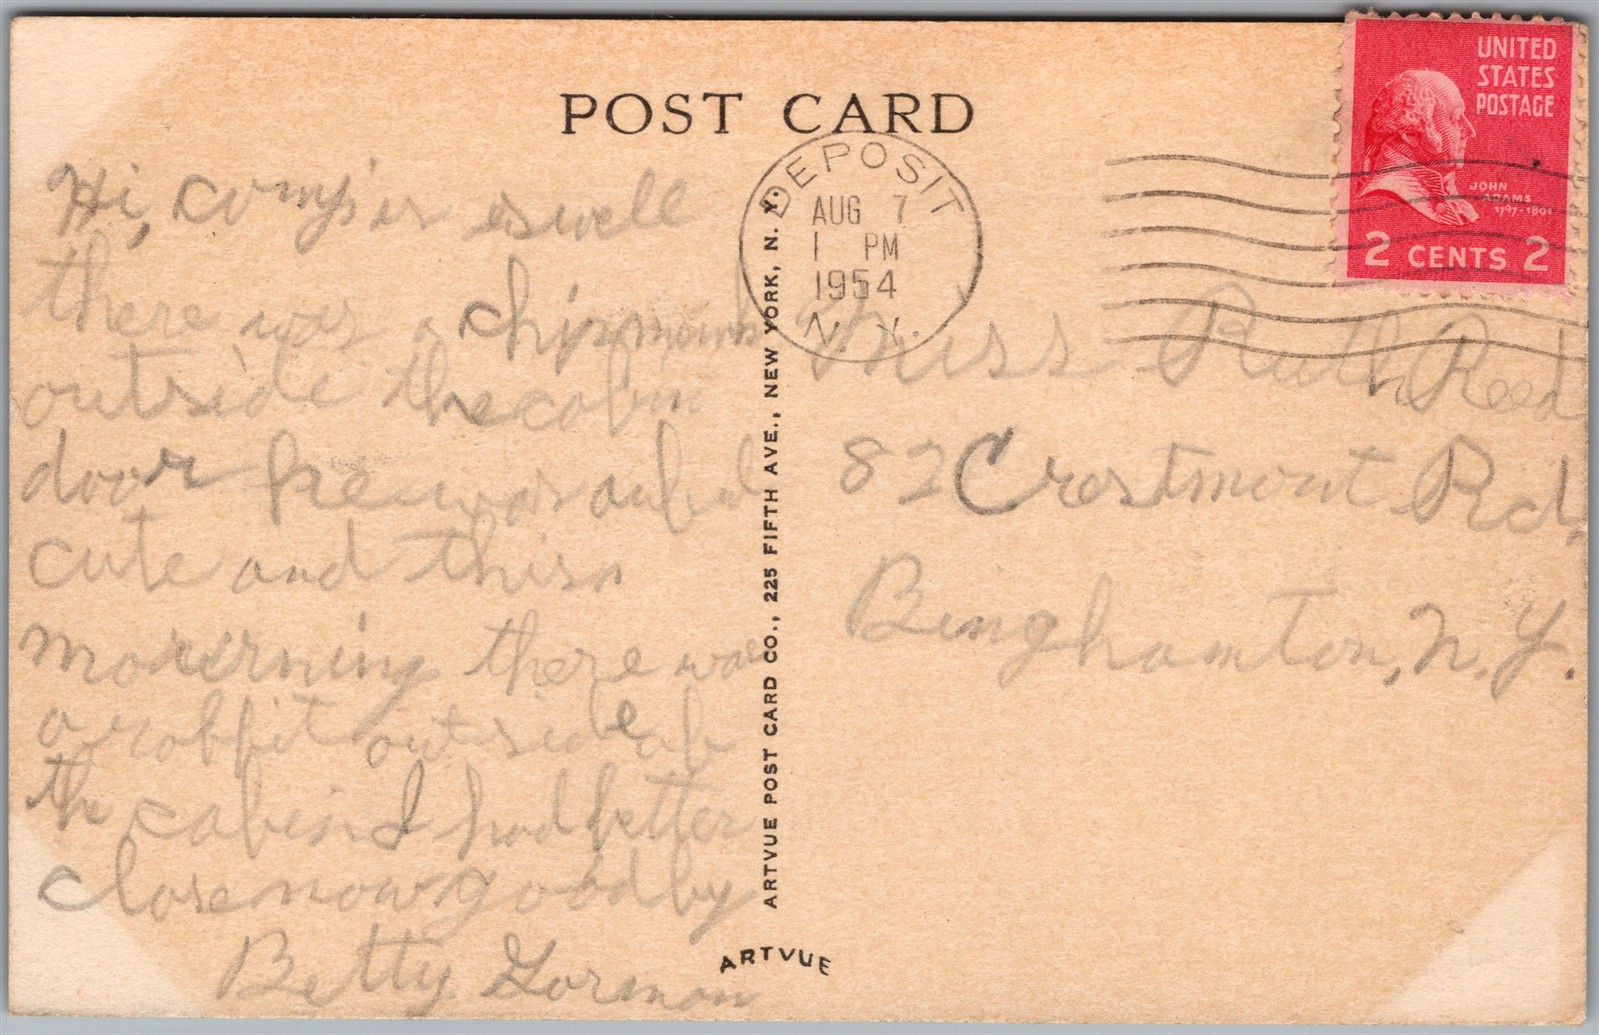 POST CARD
UNITED
STATES
POSTAGE
JOHN
ADAMS
1797-1801
2 CENTS 2
DEPOSIT
AUG 7
1 PM
1954
N. Y.
Hi, is swell
there was a chipmonk
outside the cabin
door he was
cute and this
morerning there was
a rabbit outside of
the cabin I had better
close now goodby
Betty Gorman
Miss Ruth Reed
82 Crestmont Rd.
Binghamton, N.Y.
ARTVUE POST CARD CO., 225 FIFTH AVE., NEW YORK, N. Y.
ARTVUE